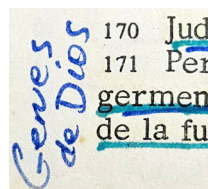 Genes
de Dios
170 Jud
171 Per
germen
de la fu